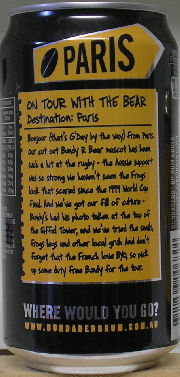 PARIS
ON TOUR WITH THE BEAR
Destination: Paris
Bonjour (that's G'Day by the way) from Paris
our cut out Bundy R Bear mascot has been
such a hit at the rugby - the Aussie support
was so strong we haven't seen the Frogs
look that scared since the 1999 World Cup
final. And we've got our fill of culture -
Bundy's had his photo taken at the top of
the Eiffel Tower, and we've tried the snails,
frogs legs and other local grub. And don't
forget that the French love BYO, so pick
up some duty free Bundy for the tour.
WHERE WOULD YOU GO?
WWW.BUNDABERGRUM.COM.AU